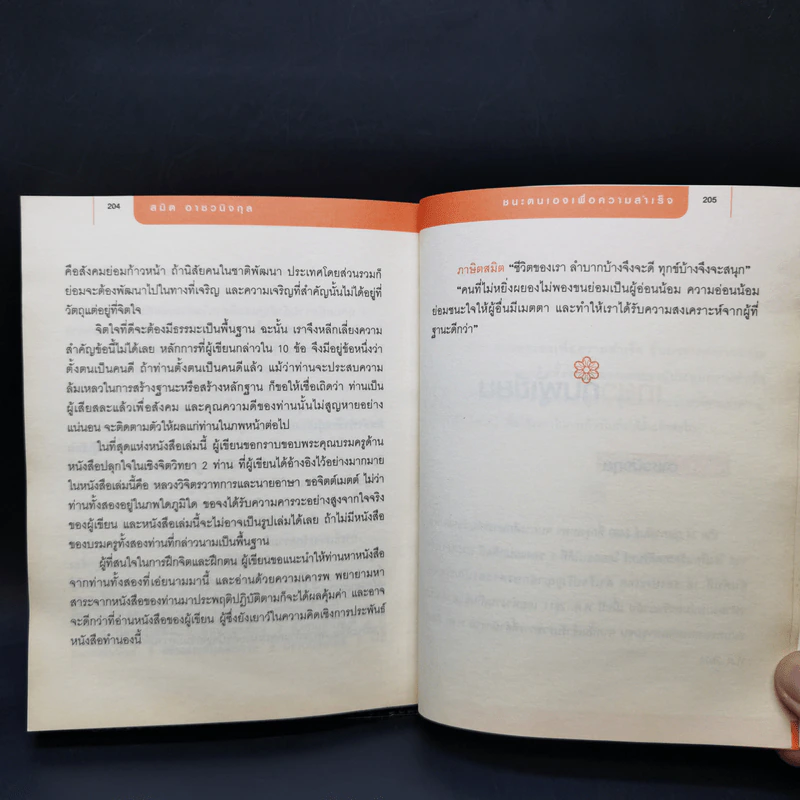 204
สมิต อาชวนิจกุล
คือสังคมย่อมก้าวหน้า ถ้านิสัยคนในชาติพัฒนา ประเทศโดยส่วนรวมก็
ย่อมจะต้องพัฒนาไปในทางที่เจริญ และความเจริญที่สำคัญนั้นไม่ได้อยู่ที่
วัตถุแต่อยู่ที่จิตใจ
จิตใจที่ดีจะต้องมีธรรมะเป็นพื้นฐาน ฉะนั้น เราจึงหลีกเลี่ยงความ
สำคัญข้อนี้ไม่ได้เลย หลักการที่ผู้เขียนกล่าวใน 10 ข้อ จึงมีอยู่ข้อหนึ่งว่า
ตั้งตนเป็นคนดี ถ้าท่านตั้งตนเป็นคนดีแล้ว แม้ว่าท่านจะประสบความ
ล้มเหลวในการสร้างฐานะหรือสร้างหลักฐาน ก็ขอให้เชื่อเถิดว่า ท่านเป็น
ผู้เสียสละแล้วเพื่อสังคม และคุณความดีของท่านนั้นไม่สูญหายอย่าง
แน่นอน จะติดตามตัวให้ผลแก่ท่านในภพหน้าต่อไป
ในที่สุดแห่งหนังสือเล่มนี้ ผู้เขียนขอกราบขอบพระคุณบรมครูด้าน
หนังสือปลุกใจในเชิงจิตวิทยา 2 ท่าน ที่ผู้เขียนได้อ้างอิงไว้อย่างมากมาย
ในหนังสือเล่มนี้คือ หลวงวิจิตรวาทการและนายอาษา ขอจิตต์เมตต์ ไม่ว่า
ท่านทั้งสองอยู่ในภพใดภูมิใด ขอจงได้รับความคารวะอย่างสูงจากใจจริง
ของผู้เขียน และหนังสือเล่มนี้จะไม่อาจเป็นรูปเล่มได้เลย ถ้าไม่มีหนังสือ
ของบรมครูทั้งสองท่านที่กล่าวนามเป็นพื้นฐาน
ผู้ที่สนใจในการฝึกจิตและฝึกตน ผู้เขียนขอแนะนำให้ท่านหาหนังสือ
จากท่านทั้งสองที่เอ่ยนามมานี้ และอ่านด้วยความเคารพ พยายามหา
สาระจากหนังสือของท่านมาประพฤติปฏิบัติตามก็จะได้ผลคุ้มค่า และอาจ
จะดีกว่าที่อ่านหนังสือของผู้เขียน ผู้ซึ่งยังเยาว์ในความคิดเชิงการประพันธ์
หนังสือทำนองนี้
ชนะตนเองเพื่อความสำเร็จ
205
ภาษิตสมิต "ชีวิตของเรา ลำบากบ้างจึงจะดี ทุกข์บ้างจึงจะสนุก"
"คนที่ไม่หยิ่งผยองไม่พองขนย่อมเป็นผู้อ่อนน้อม ความอ่อนน้อม
ย่อมชนะใจให้ผู้อื่นมีเมตตา และทำให้เราได้รับความสงเคราะห์จากผู้ที่
ฐานะดีกว่า"